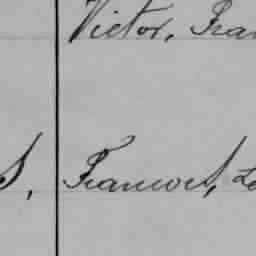 Victor, Fran
S, Francois, Lo